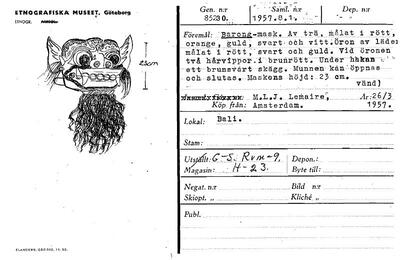 ETNOGRAFISKA MUSEET, Göteborg
ETNOGR.
23cm
ELANDERS, GBG
Gen. n:r Saml. n:r Dep. n:r
1957.8.1.
Föremål: Barong-mask. Av trä, målat i rött,
orange, guld, svart och vitt. Öron av läder
målat i rött, svart och guld. Vid öronen
två hårvippor.i brunrött. Under hakan
ett brunsvärt skägg. Munnen kan öppnas
och slutas. Maskens höjd: 23 cm.
vänd)
M.L.J. Lemaire, År:26/3
Köp från: Amsterdam. 1957.
Lokal: Bali.
Stam:
Utställt: G-S. Rvm-9, Depon.:
Magasin: H-23. Byte till:
Negat. n:r Bild n:r
Skiopt. „ Kliché „
Publ.